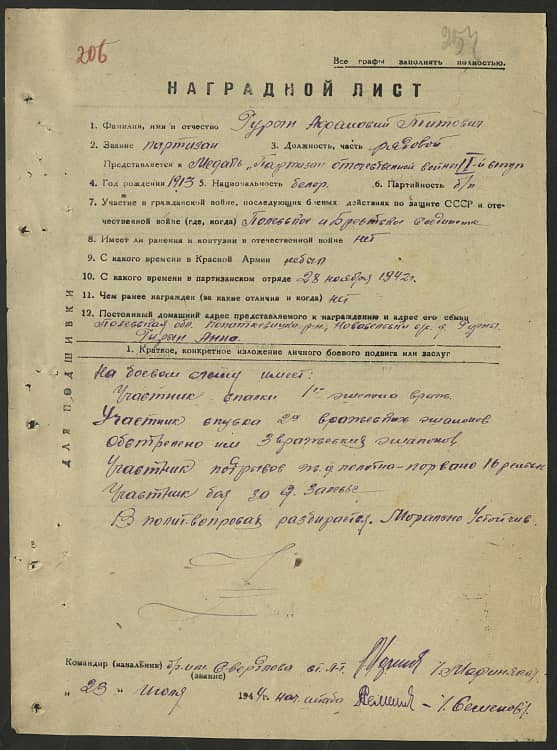 206
257
Все графы заполнять полностью.
НАГРАДНОЙ ЛИСТ
1. Фамилия, имя и отчество Гурын Титович
2. Звание партизан 3. Должность, часть рядовой
Представляется к Медаль „Партизан отечественной войны II-й ступ
4. Год рождения 1913 5. Национальность белор. 6. Партийность б/п
7. Участие в гражданской войне, последующих боевых действиях по защите СССР и оте-
чественной войне (где, когда) и Брестское
8. Имеет ли ранения и контузии в отечественной войне нет
9. С какого времени в Красной Армии небыл
10. С какого времени в партизанском отряде 28 ноября 1942 г.
11. Чем ранее награжден (за какие отличия и когда) нет
12. Постоянный домашний адрес представляемого к награждению и адрес его семьи
обл. р-н, д.
Гурын Анна.
1. Краткое, конкретное изложение личного боевого подвига или заслуг
На боевом счету имеет:
Участник 1го эшелона врага
Участник спуска 2х вражеских эшалонов
Обстрелено им 3 вражеских эшалонов
Участник подрывов ж.д полотно-порвано 16 рельс
Участник боя за д.
В полит.вопросах разбирается. Морально Устойчив.
ДЛЯ ПОДШИВКИ
Командир (начальник) бр. им. Свердлова ст. л-т
(звание)
„ 23 „ июля 1944 г. нач. штаба /Семенов/